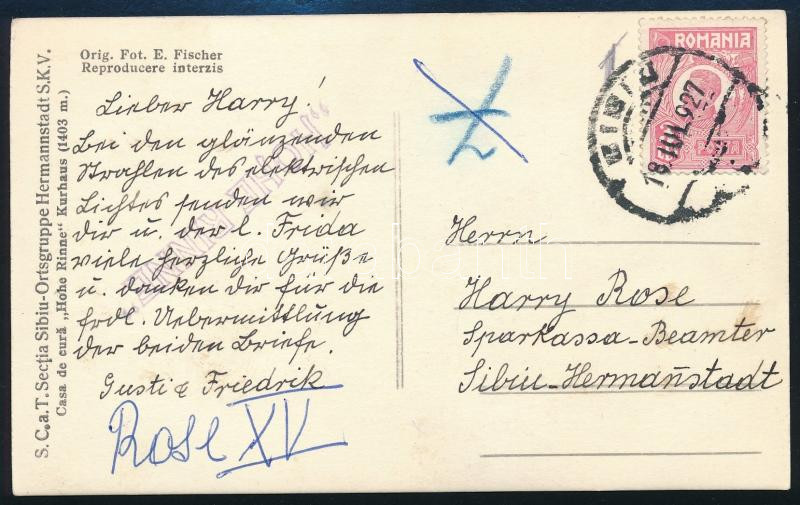 S. C. a. T. Secția Sibiu-Ortsgruppe Hermannstadt S.K.V.
Casa de cură „Hohe Rinne“ Kurhaus (1403 m.)
Orig. Fot. E. Fischer
Reproducere interzis
Lieber Harry!
Bei den glänzenden
Strahlen des elektrischen
Lichtes senden wir
dir u. der l. Frida
viele herzliche Grüße
u. danken dir für die
frdl. Uebermittlung
der beiden Briefe.
Gusti & Friedrik
Rose XV
ROMANIA
SIBIU
18 IUL 927
Herrn
Harry Rose
Sparkassa-Beamter
Sibiu-Herman̄stadt